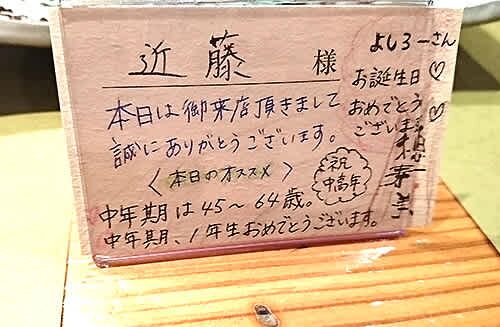 近藤 様
本日は御来店頂きまして
誠にありがとうございます。
〈本日のオススメ〉
中年期は45～64歳。
中年期、1年生おめでとうございます。
祝
中高年
よしろーさん
お誕生日♡
おめでとう♡
ございます